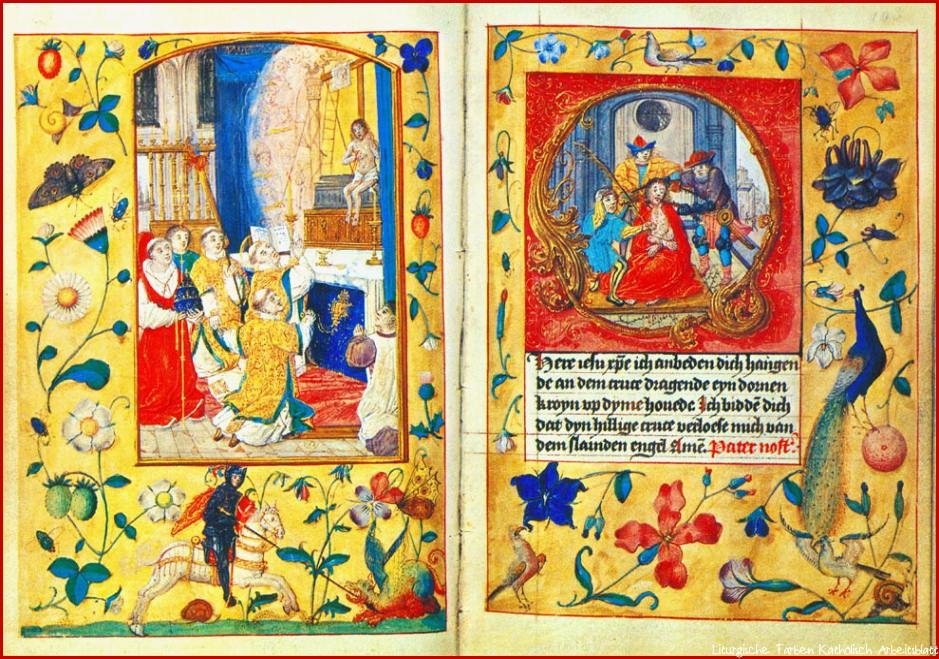 Here iesu xp̄e ich anbeden dich hangen
de an dem cruce dragende eyn dornen
kroyn vp dyme houede. Ich biddē dich
dat dyn hillige cruce verloese mich van
dem slainden engel Amē. Pater nost̄.
Liturgische Farben Katholisch Arbeitsblatt